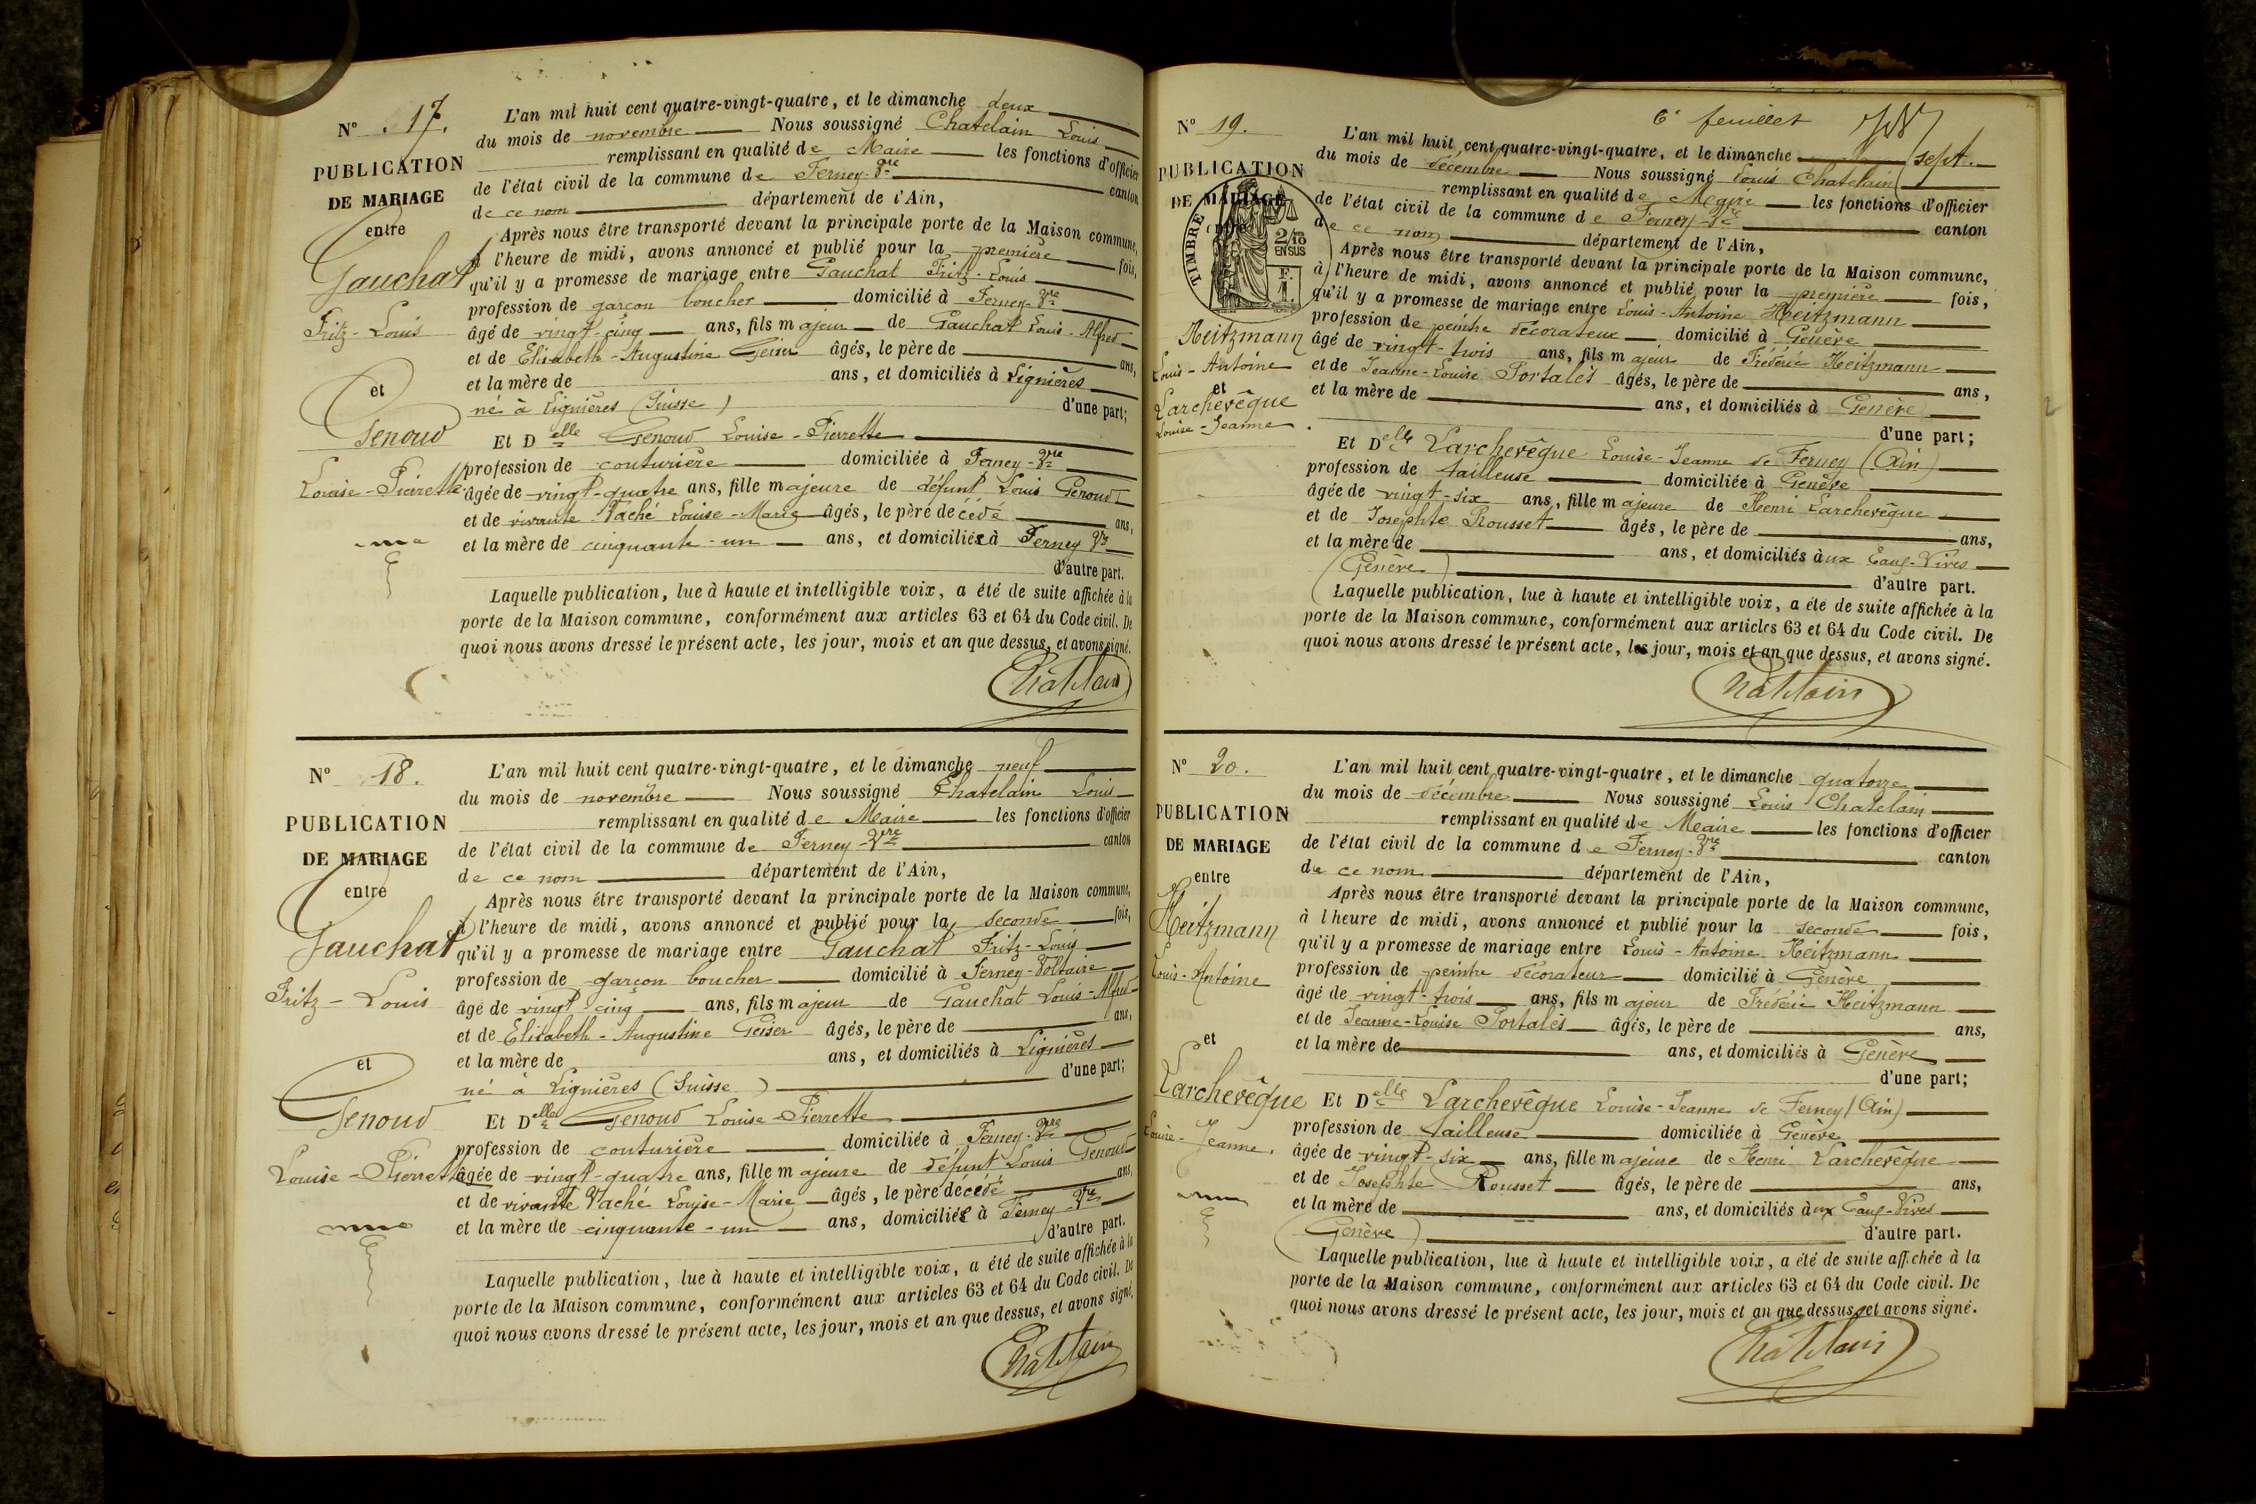 N° 17.
PUBLICATION
DE MARIAGE
entre
Gauchat
Fritz-Louis
et
Genoud
Louise-Pierrette
L'an mil huit cent quatre-vingt-quatre, et le dimanche deux
du mois de novembre Nous soussigné Chatelain Louis
remplissant en qualité de Maire les fonctions d'officier
de l'état civil de la commune de Ferney-Vre canton
de ce nom département de l'Ain,
Après nous être transporté devant la principale porte de la Maison commune,
à l'heure de midi, avons annoncé et publié pour la première fois,
qu'il y a promesse de mariage entre Gauchat Fritz-Louis
profession de garçon boucher domicilié à Ferney-Vre
âgé de vingt-cinq ans, fils majeur de Gauchat Louis-Alfred
et de Elisabeth-Augustine Geiser âgés, le père de ans,
et la mère de ans, et domiciliés à Lignières
né à Lignières (Suisse) d'une part;
Et Delle Genoud Louise-Pierrette
profession de couturière domiciliée à Ferney-Vre
âgée de vingt-quatre ans, fille majeure de défunt Louis Genoud
et de vivante Vaché Louise-Marie âgés, le père décédé ans,
et la mère de cinquante-un ans, et domiciliée à Ferney Vre
d'autre part.
Laquelle publication, lue à haute et intelligible voix, a été de suite affichée à la
porte de la Maison commune, conformément aux articles 63 et 64 du Code civil. De
quoi nous avons dressé le présent acte, les jour, mois et an que dessus, et avons signé.
Chatelain
N° 18.
PUBLICATION
DE MARIAGE
entre
Gauchat
Fritz-Louis
et
Genoud
Louise-Pierrette
L'an mil huit cent quatre-vingt-quatre, et le dimanche neuf
du mois de novembre Nous soussigné Chatelain Louis
remplissant en qualité de Maire les fonctions d'officier
de l'état civil de la commune de Ferney-Vre canton
de ce nom département de l'Ain,
Après nous être transporté devant la principale porte de la Maison commune,
à l'heure de midi, avons annoncé et publié pour la seconde fois,
qu'il y a promesse de mariage entre Gauchat Fritz-Louis
profession de garçon boucher domicilié à Ferney-Voltaire
âgé de vingt cinq ans, fils majeur de Gauchat Louis-Alfred
et de Elisabeth-Augustine Geiser âgés, le père de ans,
et la mère de ans, et domiciliés à Lignières
né à Lignières (Suisse) d'une part;
Et Delle Genoud Louise-Pierrette
profession de couturière domiciliée à Ferney-Vre
âgée de vingt-quatre ans, fille majeure de défunt Louis Genoud
et de vivante Vaché Louise-Marie âgés, le père décédé ans,
et la mère de cinquante-un ans, domiciliée à Ferney-Vre
d'autre part.
Laquelle publication, lue à haute et intelligible voix, a été de suite affichée à la
porte de la Maison commune, conformément aux articles 63 et 64 du Code civil. De
quoi nous avons dressé le présent acte, les jour, mois et an que dessus, et avons signé.
Chatelain
6e feuillet
N° 19.
PUBLICATION
DE MARIAGE
entre
TIMBRE
2/10
EN SUS
Heitzmann
Louis-Antoine
et
Larchevêque
Louise-Jeanne
L'an mil huit cent quatre-vingt-quatre, et le dimanche sept
du mois de décembre Nous soussigné Louis Chatelain
remplissant en qualité de Maire les fonctions d'officier
de l'état civil de la commune de Ferney Vre canton
de ce nom département de l'Ain,
Après nous être transporté devant la principale porte de la Maison commune,
à l'heure de midi, avons annoncé et publié pour la première fois,
qu'il y a promesse de mariage entre Louis-Antoine Heitzmann
profession de peintre décorateur domicilié à Genève
âgé de vingt-trois ans, fils majeur de Frédéric Heitzmann
et de Jeanne-Louise Portalès âgés, le père de ans,
et la mère de ans, et domiciliés à Genève
d'une part;
Et Delle Larchevêque Louise-Jeanne de Ferney (Ain)
profession de tailleuse domiciliée à Genève
âgée de vingt-six ans, fille majeure de Henri Larchevêque
et de Josephte Rousset âgés, le père de ans,
et la mère de ans, et domiciliés aux Eaux-Vives
(Genève) d'autre part.
Laquelle publication, lue à haute et intelligible voix, a été de suite affichée à la
porte de la Maison commune, conformément aux articles 63 et 64 du Code civil. De
quoi nous avons dressé le présent acte, les jour, mois et an que dessus, et avons signé.
Chatelain
N° 20.
PUBLICATION
DE MARIAGE
entre
Heitzmann
Louis-Antoine
et
Larchevêque
Louise-Jeanne.
L'an mil huit cent quatre-vingt-quatre, et le dimanche quatorze
du mois de décembre Nous soussigné Louis Chatelain
remplissant en qualité de Maire les fonctions d'officier
de l'état civil de la commune de Ferney-Vre canton
de ce nom département de l'Ain,
Après nous être transporté devant la principale porte de la Maison commune,
à l'heure de midi, avons annoncé et publié pour la seconde fois,
qu'il y a promesse de mariage entre Louis-Antoine Heitzmann
profession de peintre décorateur domicilié à Genève
âgé de vingt-trois ans, fils majeur de Frédéric Heitzmann
et de Jeanne-Louise Portalès âgés, le père de ans,
et la mère de ans, et domiciliés à Genève
d'une part;
Et Delle Larchevêque Louise-Jeanne de Ferney (Ain)
profession de tailleuse domiciliée à Genève
âgée de vingt-six ans, fille majeure de Henri Larchevêque
et de Josephte Rousset âgés, le père de ans,
et la mère de ans, et domiciliés aux Eaux-Vives
(Genève) d'autre part.
Laquelle publication, lue à haute et intelligible voix, a été de suite affichée à la
porte de la Maison commune, conformément aux articles 63 et 64 du Code civil. De
quoi nous avons dressé le présent acte, les jour, mois et an que dessus, et avons signé.
Chatelain